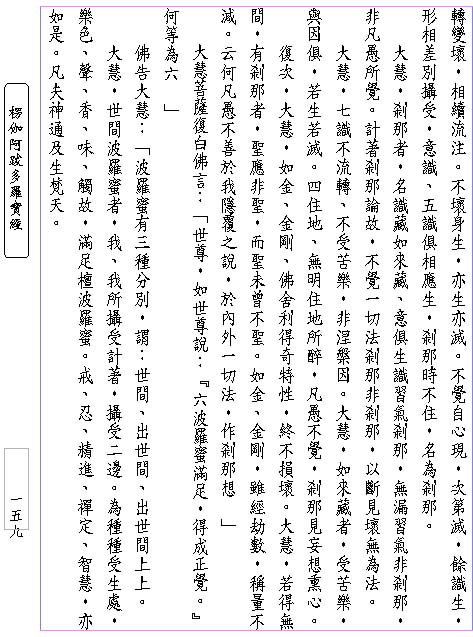 轉變壞，相續流注。不壞身生，亦生亦滅。不覺自心現，次第滅，餘識生，
形相差別攝受，意識、五識俱相應生，剎那時不住，名為剎那。
大慧，剎那者，名識藏如來藏、意俱生識習氣剎那，無漏習氣非剎那，
非凡愚所覺。計著剎那論故，不覺一切法剎那非剎那，以斷見壞無為法。
大慧，七識不流轉、不受苦樂，非涅槃因。大慧，如來藏者，受苦樂，
與因俱，若生若滅。四住地、無明住地所醉，凡愚不覺，剎那見妄想熏心。
復次，大慧，如金、金剛、佛舍利得奇特性，終不損壞。大慧，若得無
間，有剎那者，聖應非聖，而聖未曾不聖。如金、金剛，雖經劫數，稱量不
減。云何凡愚不善於我隱覆之說，於內外一切法，作剎那想」
大慧菩薩復白佛言：「世尊，如世尊說：『六波羅蜜滿足，得成正覺。』
何等為六」
佛告大慧：「波羅蜜有三種分別，謂：世間、出世間、出世間上上。
大慧，世間波羅蜜者，我、我所攝受計著，攝受二邊。為種種受生處，
樂色、聲、香、味、觸故，滿足檀波羅蜜。戒、忍、精進、禪定、智慧，亦
如是。凡夫神通及生梵天。
楞伽阿跋多羅寶經
一五九